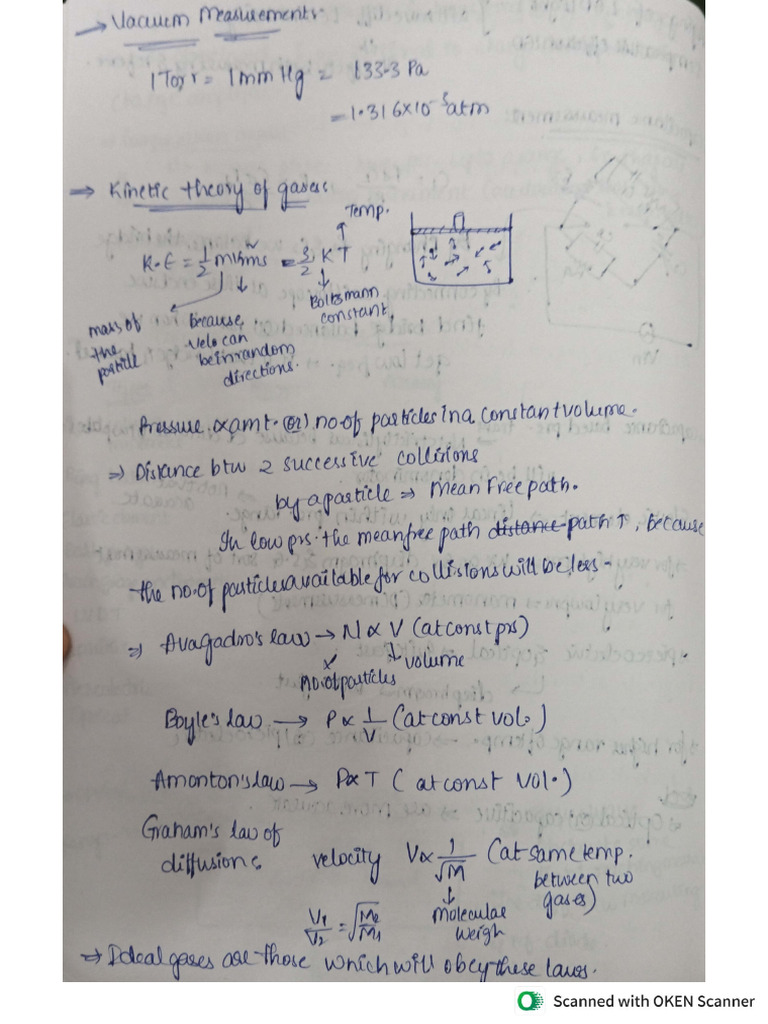 → Vacuum Measurements:
1 Torr = 1mm Hg = 133.3 Pa
= 1.316×10⁻³atm
⇒ Kinetic theory of gases
Temp.
K.E = 1/2 m v²rms = 3/2 K T
mass of the particle
because velo can be in random directions.
Boltzmann constant
Pressure ∝ amt. (or) no of particles in a constant volume.
⇒ Distance btw 2 successive collisions
by a particle ⇒ Mean Free path.
In low prs. the mean free path distance path↑, because
the no. of particles available for collisions will be less.
⇒ Avagadro's law → N ∝ V (at const prs)
no. of particles
volume
Boyle's law → P ∝ 1/V (at const vol.)
Amonton's law → P∝ T (at const vol.)
Graham's law of
diffusion: velocity V∝ 1/√M (at same temp.
between two
gases)
V1/V2 = √M2/M1
molecular
weigh
⇒ Ideal gases are those which will obey these laws.
Scanned with OKEN Scanner